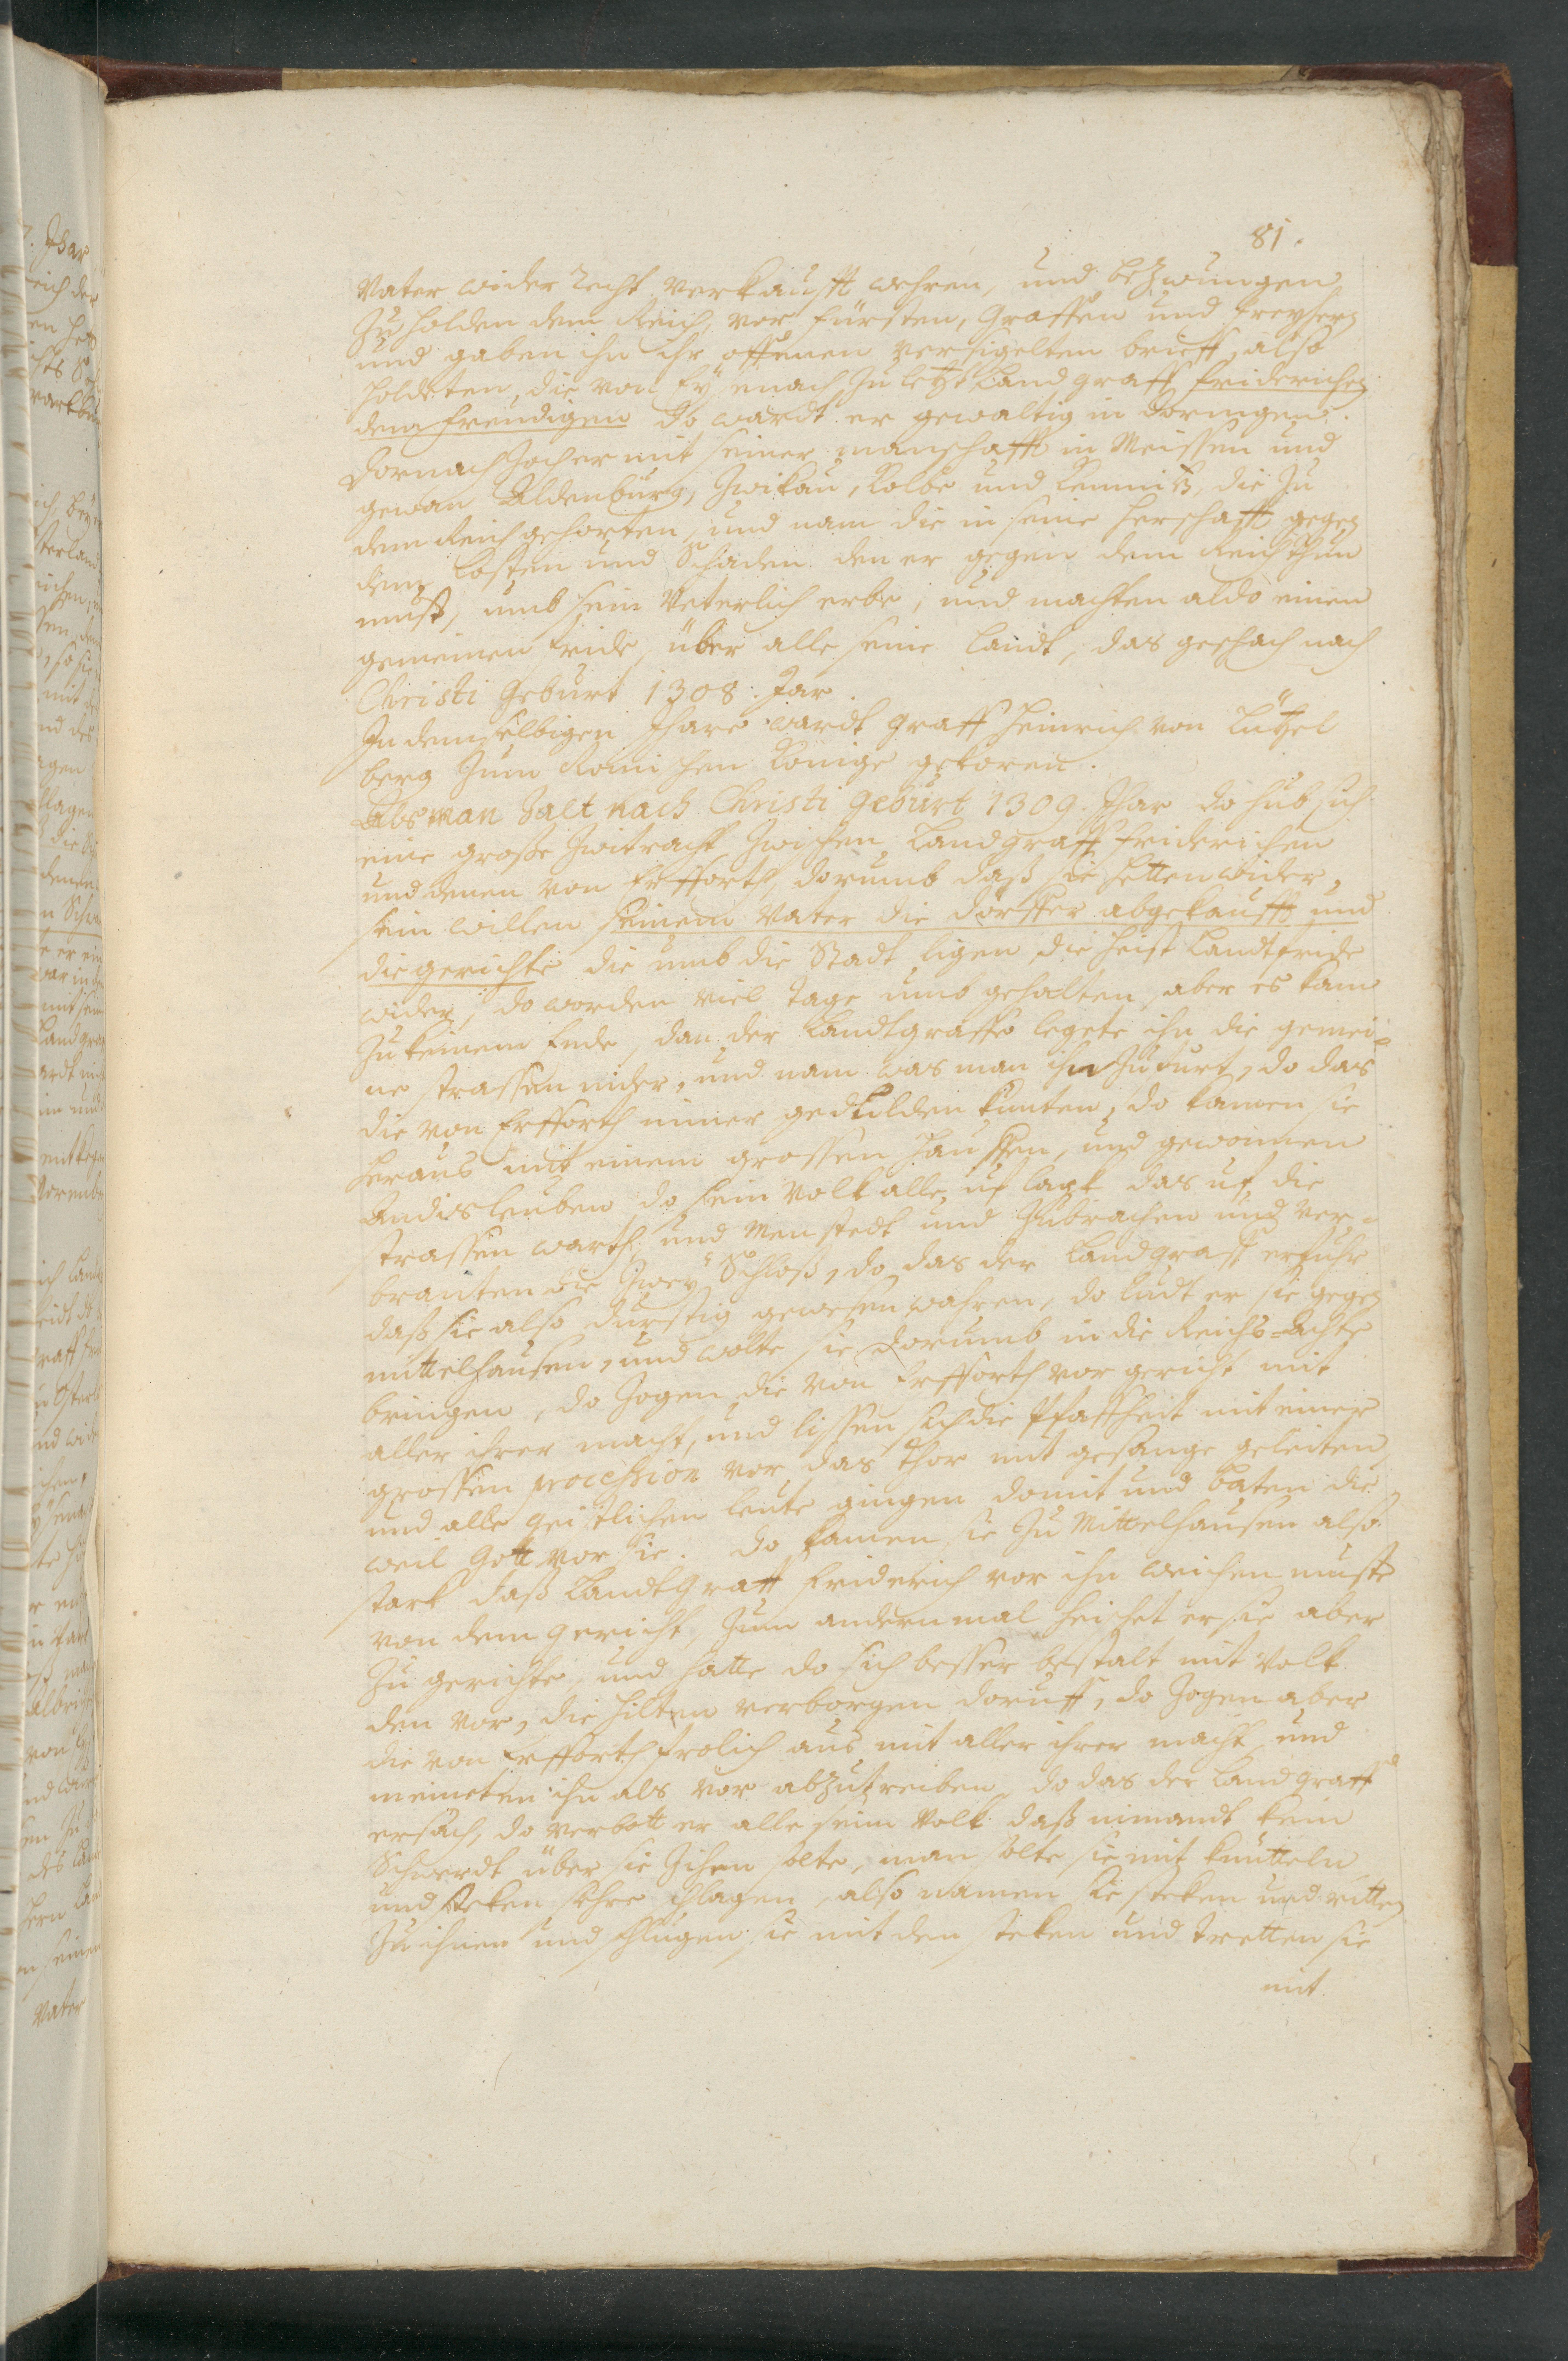 81.
Vater wider Recht verkaufft wehren, und bezwungen
zu holden dem Reich, vor Fürsten, Graffen und Freyhern
und gaben ihn ihr offenen versigelten brieff also
holdeten, die von Eysenach zu letzt Landgraff Friderichen
dem Freudigen do wardt er gewaltig in Doringen.
Dornach zoch er mit seiner manschafft in Meissen und
gewan Aldenburg, Zwikau, Kolbe und Kemnitz, die zu
dem Reich gehorten, und nam die in seine herschafft gegen
dem Kosten und Schaden den er gegen dem Reich thun
must, umb sein Veterlich erbe, und machten aldo einen
gemeinen fride, über alle seine Landt, das geschach nach
Christi Geburt 1308. Jar.
In demselbigen Jhare wardt Graff Heinrich von Lützel
berg zum Romischen Konige gekoren.
Als man zalt nach Christi Geburt 1309. Jhar do hub sich
eine grosse Zwitracht zwischen Landgraff Friderichen
und denen von Erfforth, dorumb daß sie hetten wider
sein willen seinem Vater die dörffer abgekaufft und
die gerichte die umb die Stadt ligen die heist Landtfride
wider, do worden viel tage umb gehalten, aber es kam
zu keinem Ende, dan der Landtgraffe legete ihn die gemei-
ne strassen nider, und nam was man ihn zufurt, do das
die von Erfforth nimer gedulden kunten, do kamen sie
heraus mit einem grossen hauffen, und gewonnen
Andisleuben do sein Volk alle uf lagk das uf die
strassen warth, und Menstedt und zubrachen und ver-
branten die zwey Schloß, do das der Landgraff erfuhr
daß sie also durstig gewesen wahren, do ludt er sie gegen
mittelhausen, und wolte sie dorumb in die Reichs-Achte
bringen, do zogen die von Erfforth vor gericht mit
aller ihrer macht, und lissen sich die Pfaffheit mit einer
grossen procession vor das Thor mit gesange geleiten
und alle geistlichen leute gingen domit und baten die
weil Gott vor sie. do kamen sie zu Mittelhausen also
stark daß Landtgraff Friderich vor ihn weichen muste
von dem gericht, zum andern mal heischet er sie aber
zu gerichte, und hatte do sich besser bestalt mit Volk
den vor, die hilten verborgen doruff, do zogen aber
die von Erfforth frolich aus mit aller ihrer macht und
meineten ihn als vor abzutreiben, do das der Landgraff
ersach, do verbott er alle seim Volk daß nimandt kein
Schwerdt über sie zihen solte, man solte sie mit knütteln
und steken sehre schlagen, also namen sie steken und ritten
zu ihnen und schlugen sie mit den steken und tretten sie
mit